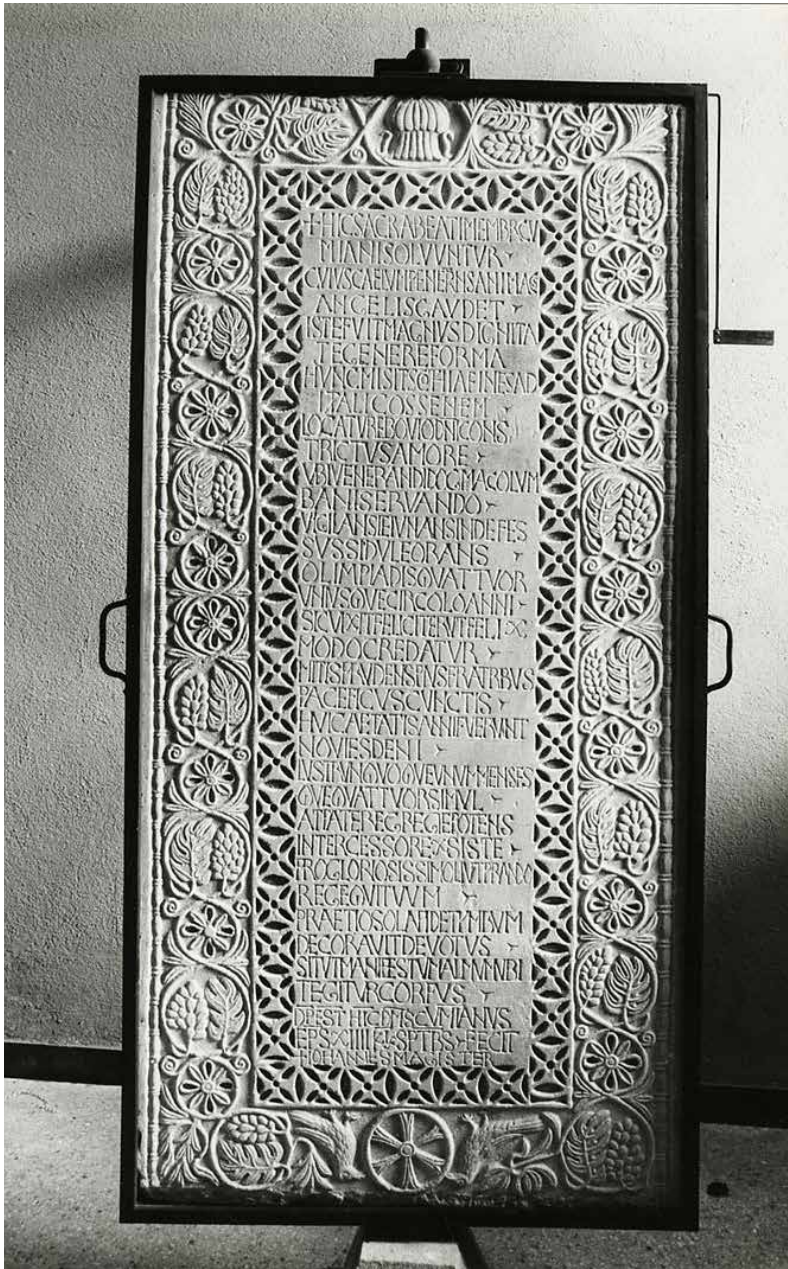 + HIC SACRA BEATI MEMBR CU
MIANI SOLVUNTUR
CUIUS CAELUM PENETRNS ANIMA
ANGELIS GAUDET
ISTE FUIT MAGNUS DIGNITA
TE GENERE FORMA
HUNC MISIT SCOTHIA FINES AD
ITALICOS SENEM
LOCATUR EBOVIO DNI CONS
TRICTUS AMORE
UBI VENERANDI DOGMA COLUM
BANI SERVANDO
VIGILANS IEIUNANS INDEFES
SUS SIDULE ORANS
OLIMPIADIS QUATTUOR
UNIUSQUE CIRCOLO ANNI
SIC VIXIT FELICITER UT FELIX
MODO CREDATUR
MITIS PRUDENS PIUS FRATRIBUS
PACEFICUS CUNCTIS
HUIC AETATIS ANNI FUERUNT
NOVIES DENI
LUSTRUM QUOQUE UNUM MENSES
QUE QUATTUOR SIMUL
AT PATER EGREGIE POTENS
INTERCESSOR EXSISTE
PRO GLORIOSISSIMO LIUTPRANDO
REGE QUI TUUM
PRAETIOSO LAPIDE TYMBUM
DECORAVIT DEVOTUS
SIT UT MANIFESTUM ALMUM UBI
TEGITUR CORPUS
DP EST HIC DMS CUMIANUS
EPS XIIII KL SPTBS FECIT
IOHANNES MAGISTER